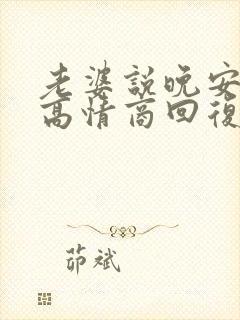 老婆說晚安
高情商回復
茆斌